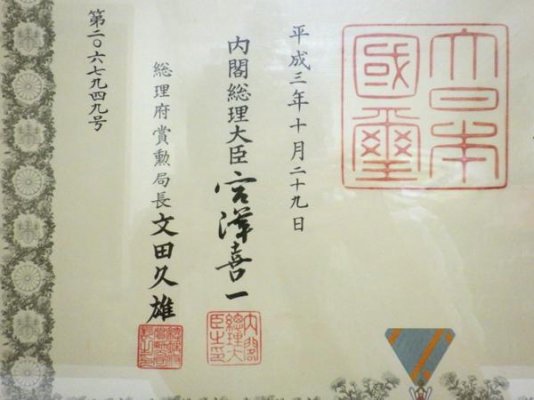 大日本
國璽
平成三年十月二十九日
内閣総理大臣 宮澤喜一
内閣
總理大
臣之印
総理府賞勲局長 文田久雄
第二〇六七九四九号